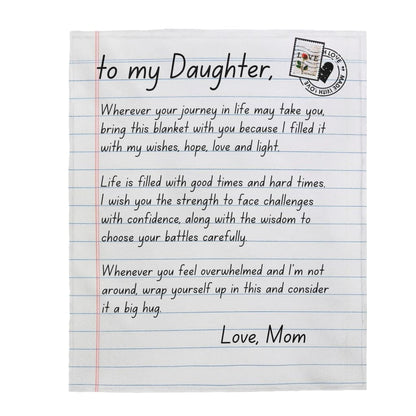 to my Daughter,
LOVE
MADE WITH LOVE
Wherever your journey in life may take you,
bring this blanket with you because I filled it
with my wishes, hope, love and light.
Life is filled with good times and hard times.
I wish you the strength to face challenges
with confidence, along with the wisdom to
choose your battles carefully.
Whenever you feel overwhelmed and I'm not
around, wrap yourself up in this and consider
it a big hug.
Love, Mom